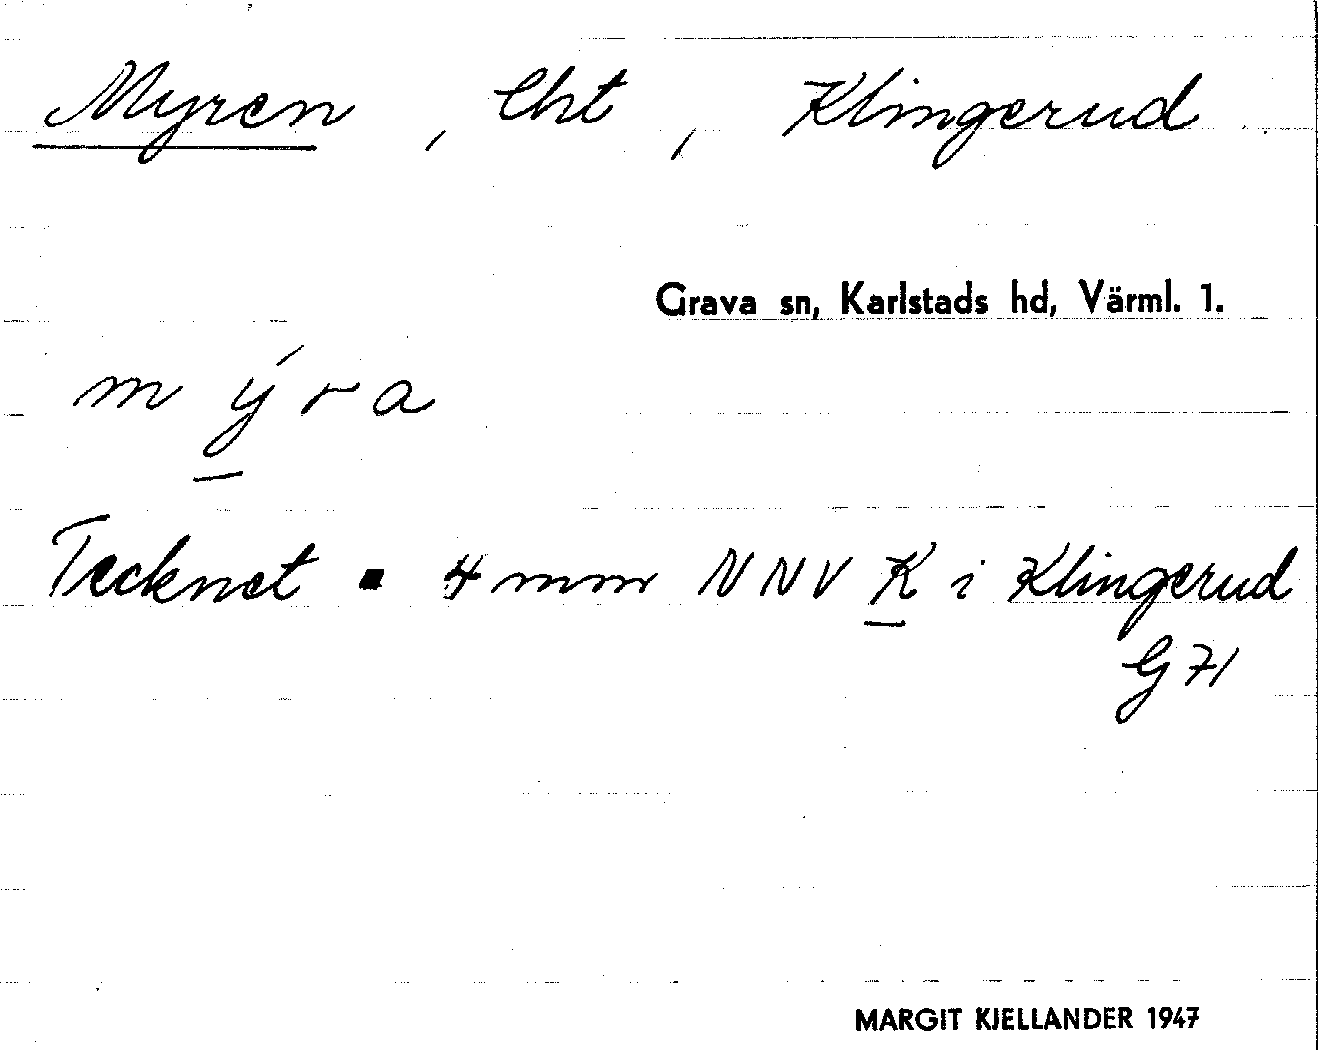 Myren, lht, Klingerud
Grava sn, Karlstads hd, Värml. 1.
mýra
Tecknet ▪ 4 mm NNV K i Klingerud
G 71
MARGIT KJELLANDER 1947